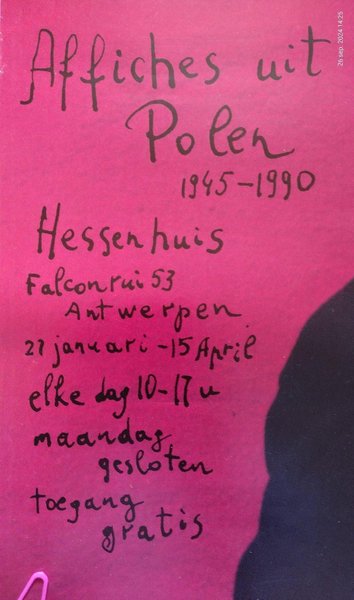 26 sep. 2024 14:25
Affiches uit
Polen
1945-1990
Hessenhuis
Falconrui 53
Antwerpen
27 januari - 15 April
elke dag 10-17 u
maandag
gesloten
toegang
gratis